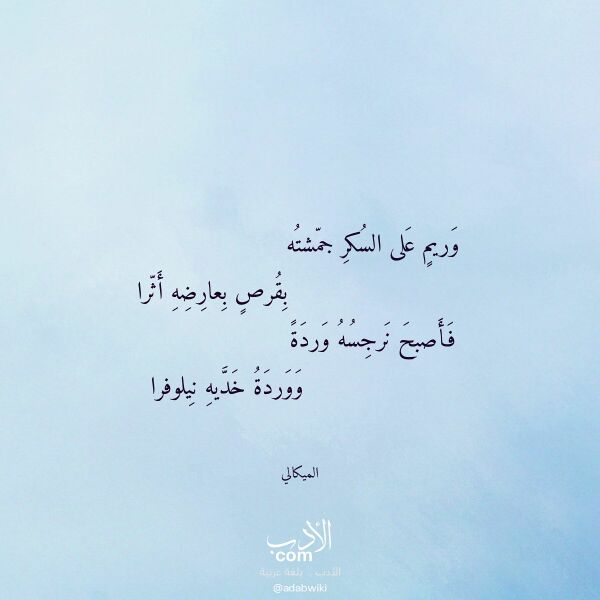 وَريمٍ عَلى السُكرِ جمّشتُه
بِقُرصٍ بِعارِضِهِ أَثّرا
فَأَصبحَ نَرجِسُهُ وَردَةً
وَوَردَةُ خَدَّيهِ نِيلوفرا
الميكالي
الأدب
com
الأدب .. بلغة عربية
@adabwiki